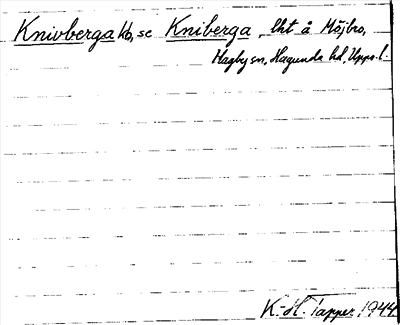 Knivberga kb, se Kniberga, lht å Möjbro,
Hagby sn, Hagunda hd, Upps. l.
K.-H. Tapper 1944